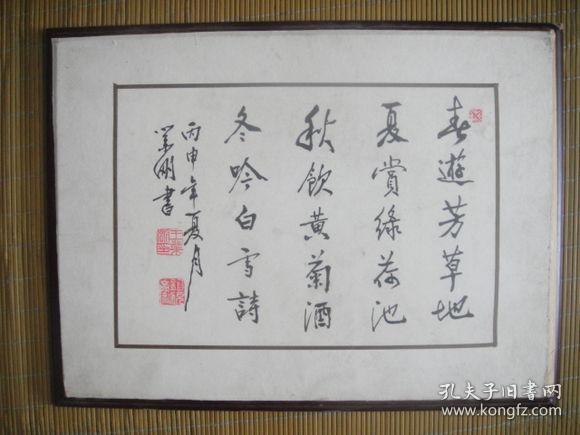 春遊芳草地
夏賞綠荷池
秋飲黃菊酒
冬吟白雪詩
丙申年夏月
書
孔夫子旧书网
www.kongfz.com